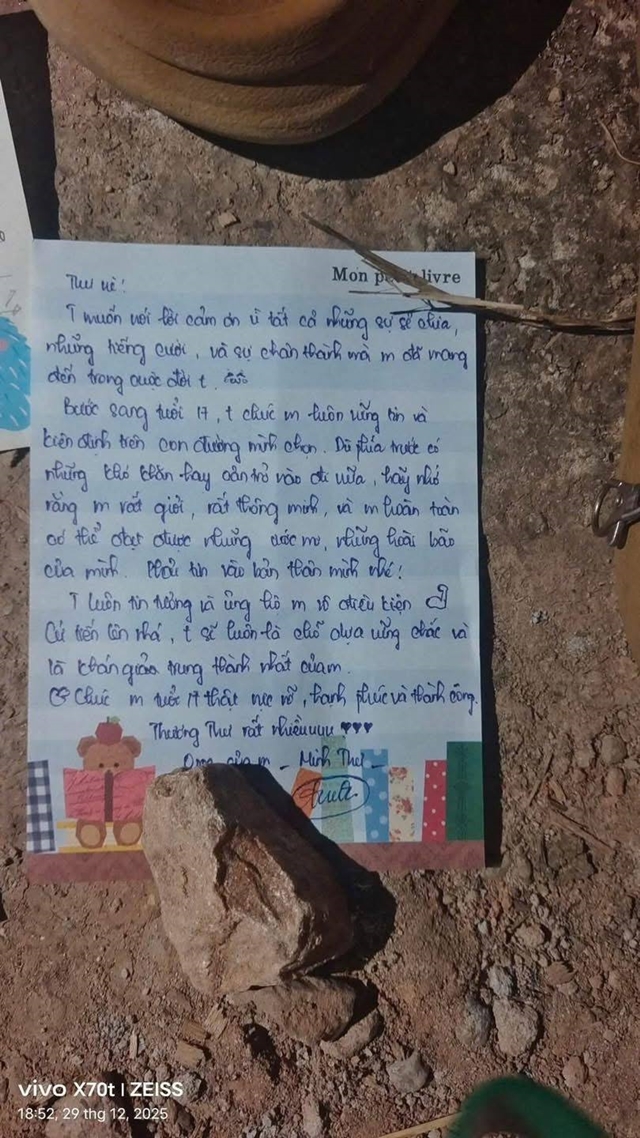 Mon livre
Thư nè!
T muốn nói lời cảm ơn vì tất cả những sự sẻ chia,
những tiếng cười, và sự chân thành mà m đã mang
đến trong cuộc đời t.
Bước sang tuổi 17, t chúc m luôn vững tin và
kiên định trên con đường mình chọn. Dù phía trước có
những khó khăn hay cản trở vào đi nữa, hãy nhớ
rằng m rất giỏi, rất thông minh, và m hoàn toàn
có thể đạt được những ước mơ, những hoài bão
của mình. Phải tin vào bản thân mình nhé!
T luôn tin tưởng và ủng hộ m vô điều kiện
Cứ tiến lên nhá, t sẽ luôn là chỗ dựa vững chắc và
là khán giả trung thành nhất của m.
Chúc m tuổi 17 thật rực rỡ, hạnh phúc và thành công.
Thương Thư rất nhiềuuuu ♥♥♥
của m - Minh Thư -
vivo X70t | ZEISS
18:52, 29 thg 12, 2025